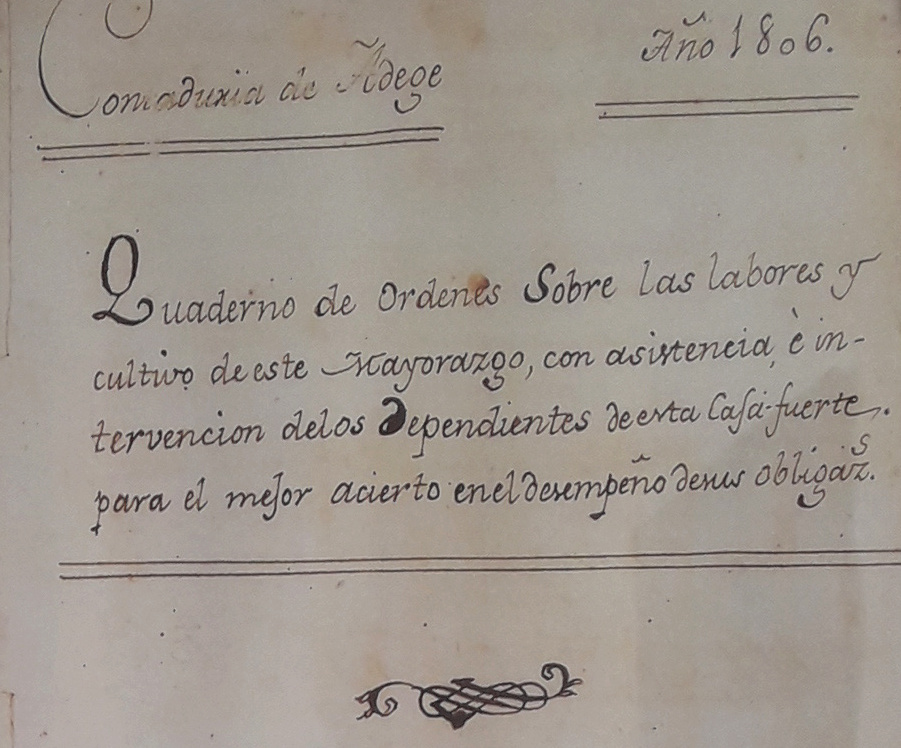 Contaduria de Adege
Año 1806.
Quaderno de Ordenes Sobre las labores y
cultivo de este Mayorazgo, con asistencia, è in-
tervencion delos Dependientes de esta Casa-fuerte,
para el mejor acierto en el desempeño desus obligaz.s